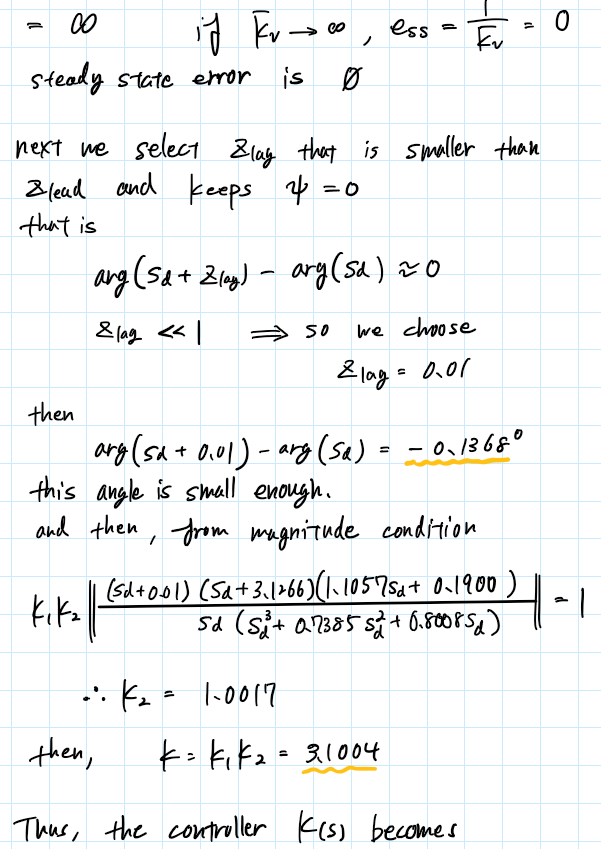 = ∞ if Kv → ∞, ess = 1/Kv = 0
steady state error is Ø
next we select Zlag that is smaller than
Zlead and keeps ψ = 0
that is
arg(Sd + Zlag) - arg(Sd) ≈ 0
Zlag << 1 ⟹ so we choose
Zlag = 0.01
then
arg(Sd + 0.01) - arg(Sd) = -0.1368°
this angle is small enough.
and then, from magnitude condition
K1K2 || (Sd+0.01)(Sd+3.1266)(1.1057Sd+0.1900) / Sd(Sd^3+0.7385Sd^2+0.8008Sd) || = 1
∴ K2 = 1.0017
then, K = K1K2 = 3.1004
Thus, the controller K(s) becomes